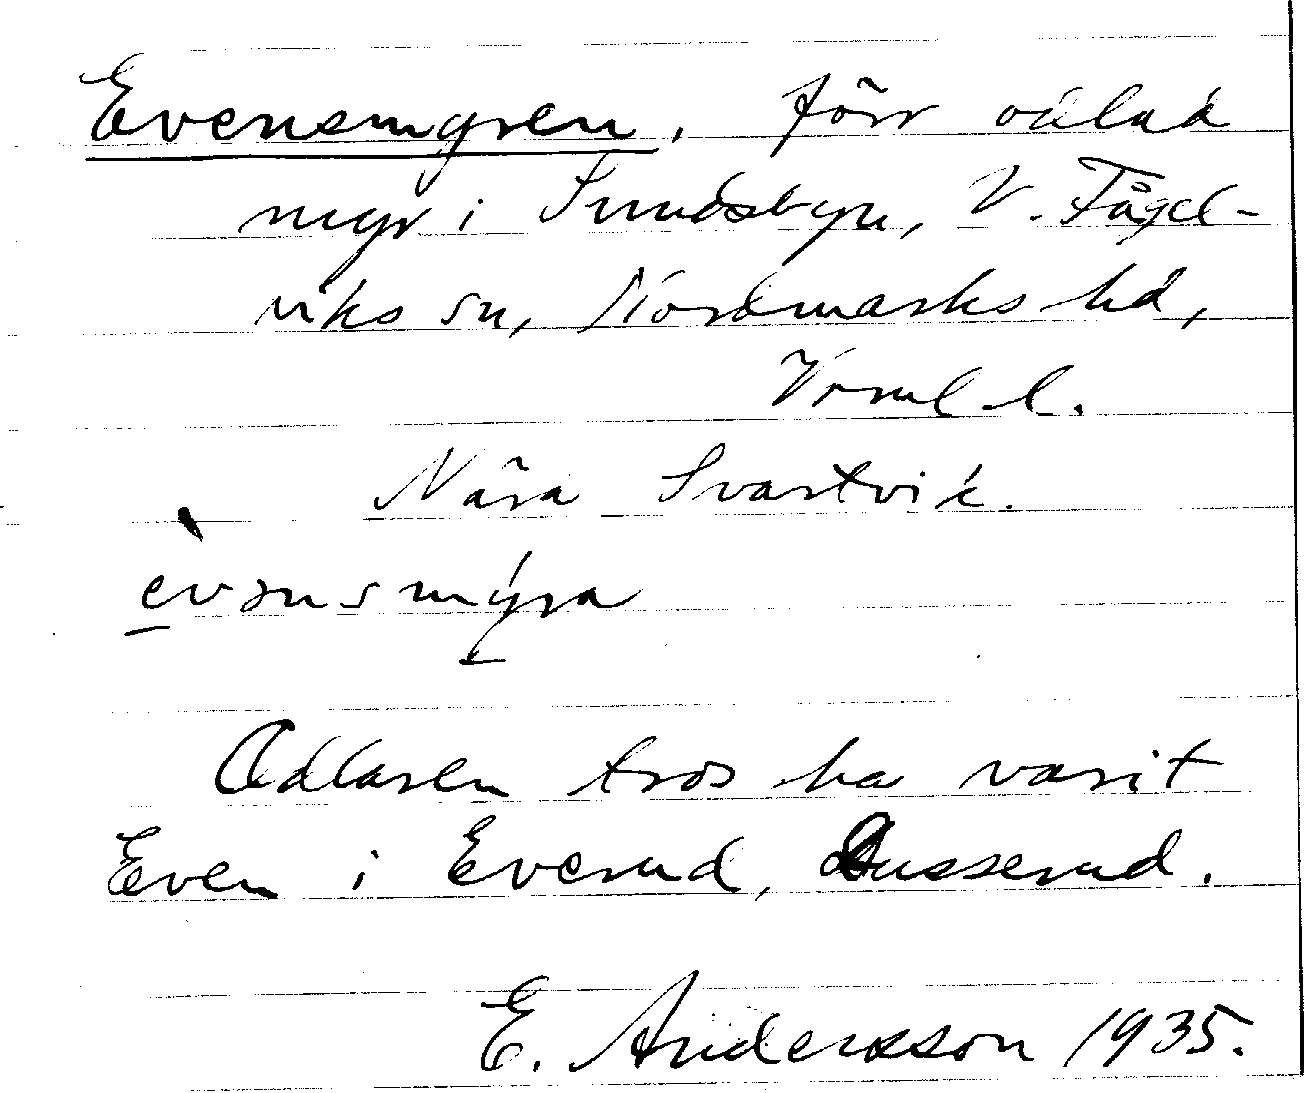 Evensmyren, förr odlad
myr i Sundsbyn, V. Fågel-
viks sn, Nordmarks hd,
Vrml. l.
Nära Svartvik.
èvənsmýra
Odlaren tros ha varit
Even i Everud, Gusserud.
E. Andersson 1935.